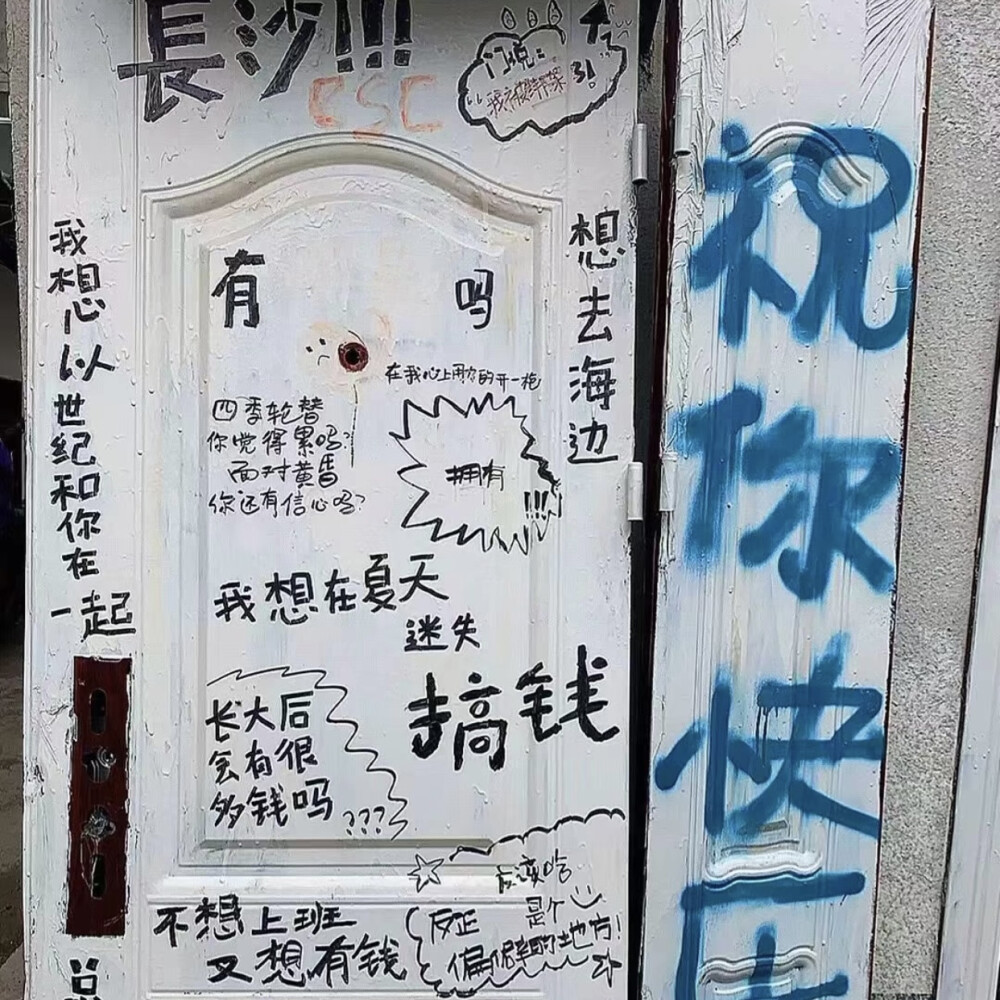 長沙!!!
CSC
门说:
我被绑架
了!
我想以世纪和你在一起
有 吗
想去海边
在我心上用力的开一枪
四季轮替
你觉得累吗?
面对黄昏
你还有信心吗?
拥有
!!!
我想在夏天
迷失
搞钱
长大后
会有很
多钱吗
???
不想上班
又想有钱
应该哈
是个
反正
偏僻的地方!
祝你快